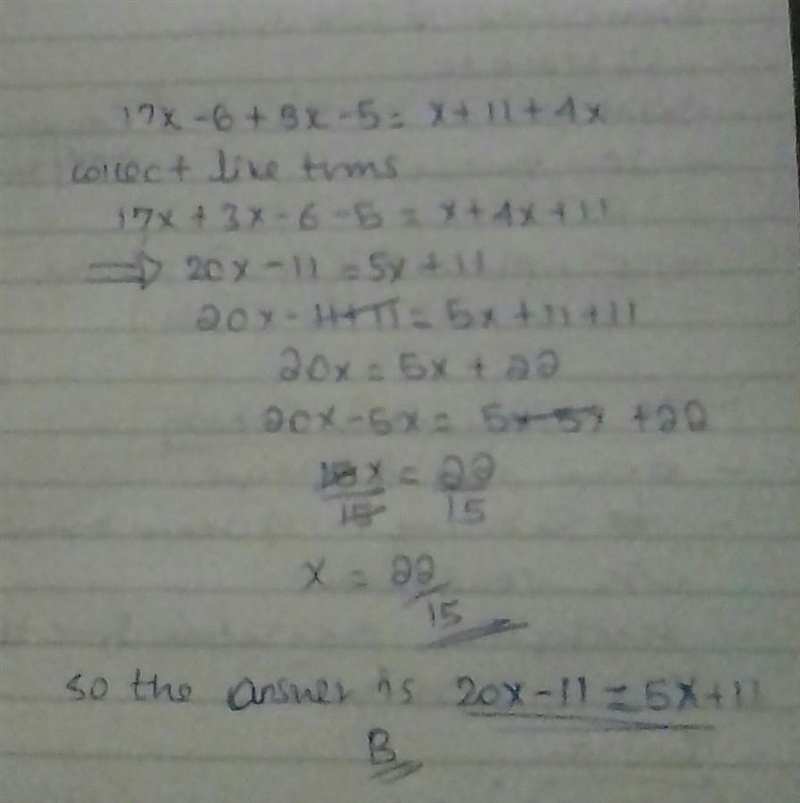 17x - 6 + 3x - 5 = x + 11 + 4x
correct like tirms
17x + 3x - 6 - 5 = x + 4x + 11
⇒ 20x - 11 = 5x + 11
20x - 11 + 11 = 5x + 11 + 11
20x = 5x + 22
20x - 5x = 5x - 5x + 22
15x/15 = 22/15
x = 22/15
so the answer is 20x - 11 = 5x + 11
B